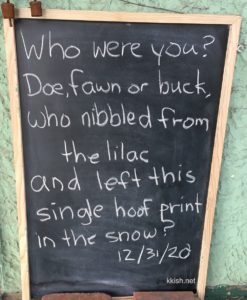 Who were you?
Doe, fawn or buck,
who nibbled from
the lilac
and left this
single hoof print
in the snow?
12/31/20
kkish.net